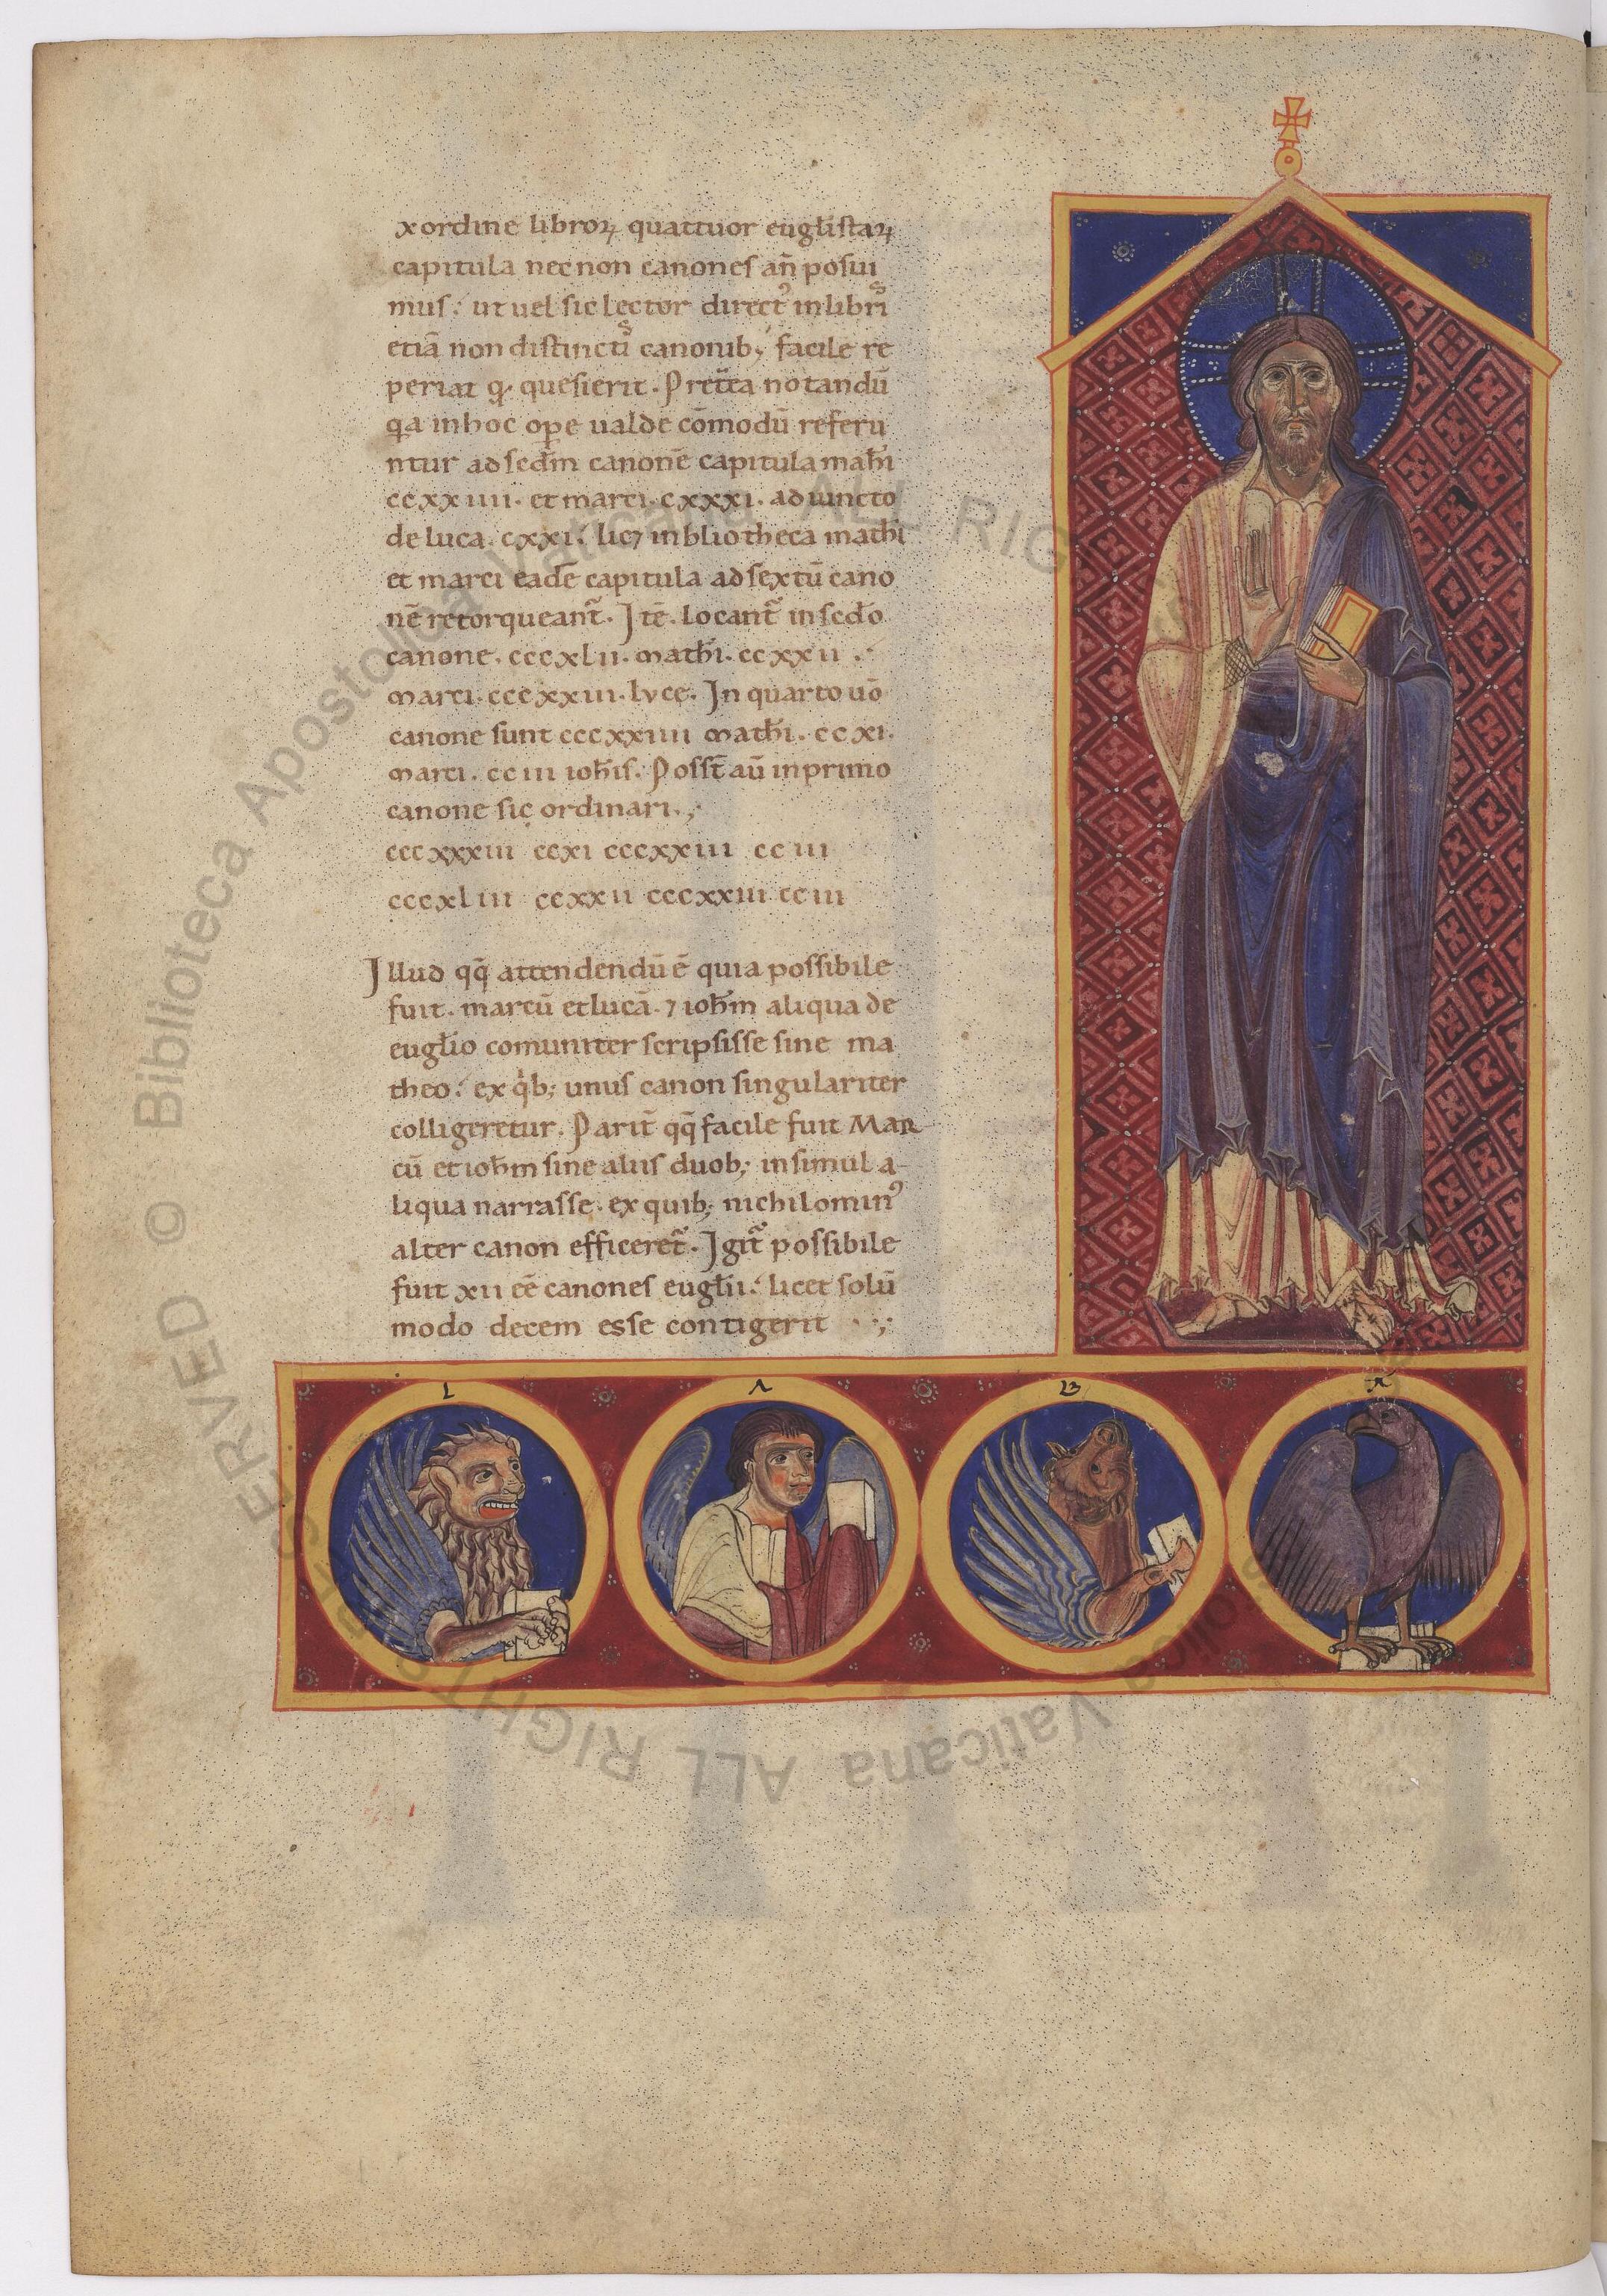 xordine libroꝝ quattuor euglistaꝝ
capitula necnon canones an̄ posui
mus: ut uel sic lector direct᷒ inlibris
etiā non distinctis canonib; facile re
periat qd quesierit. Pret̄ea notandū
qa inhoc ope ualde cōmodū referu
ntur ad scdm canonē capitula mathi
ccxxiiii. et marci. cxxxi. adiuncto
de luca. cxxi. licꝫ inbliotheca mathi
et marci eadē capitula adsextū cano
nē retorqueant̄. Itē. Locant̄ inscdo
canone. cccxlii. mathi. ccxxii.
marci. cccxxiii. lvce. In quarto uō
canone sunt cccxxiiii mathi. ccxi.
marci. cciii iohis. Posst̄ aū inprimo
canone sic ordinari.
cccxxxiii ccxi cccxxiii cciii
cccxliii ccxxii cccxxiii cciii
Illud qq̄ attendendū ē quia possibile
fuit. marcū etlucā. ⁊ iohm aliqua de
euglio comuniter scripsisse sine ma
theo: ex qib; unus canon singulariter
colligeretur. Parit̄ qq̄ facile fuit Mar
cū et iohm sine aliis duob; insimul a
liqua narrasse. ex quib; nichilomin᷒
alter canon efficeret̄. Igit̄ possibile
fuit xii eē canones euglii: licet solū
modo decem esse contigerit
L A B A
© Biblioteca Apostolica Vaticana ALL RIGHTS RESERVED